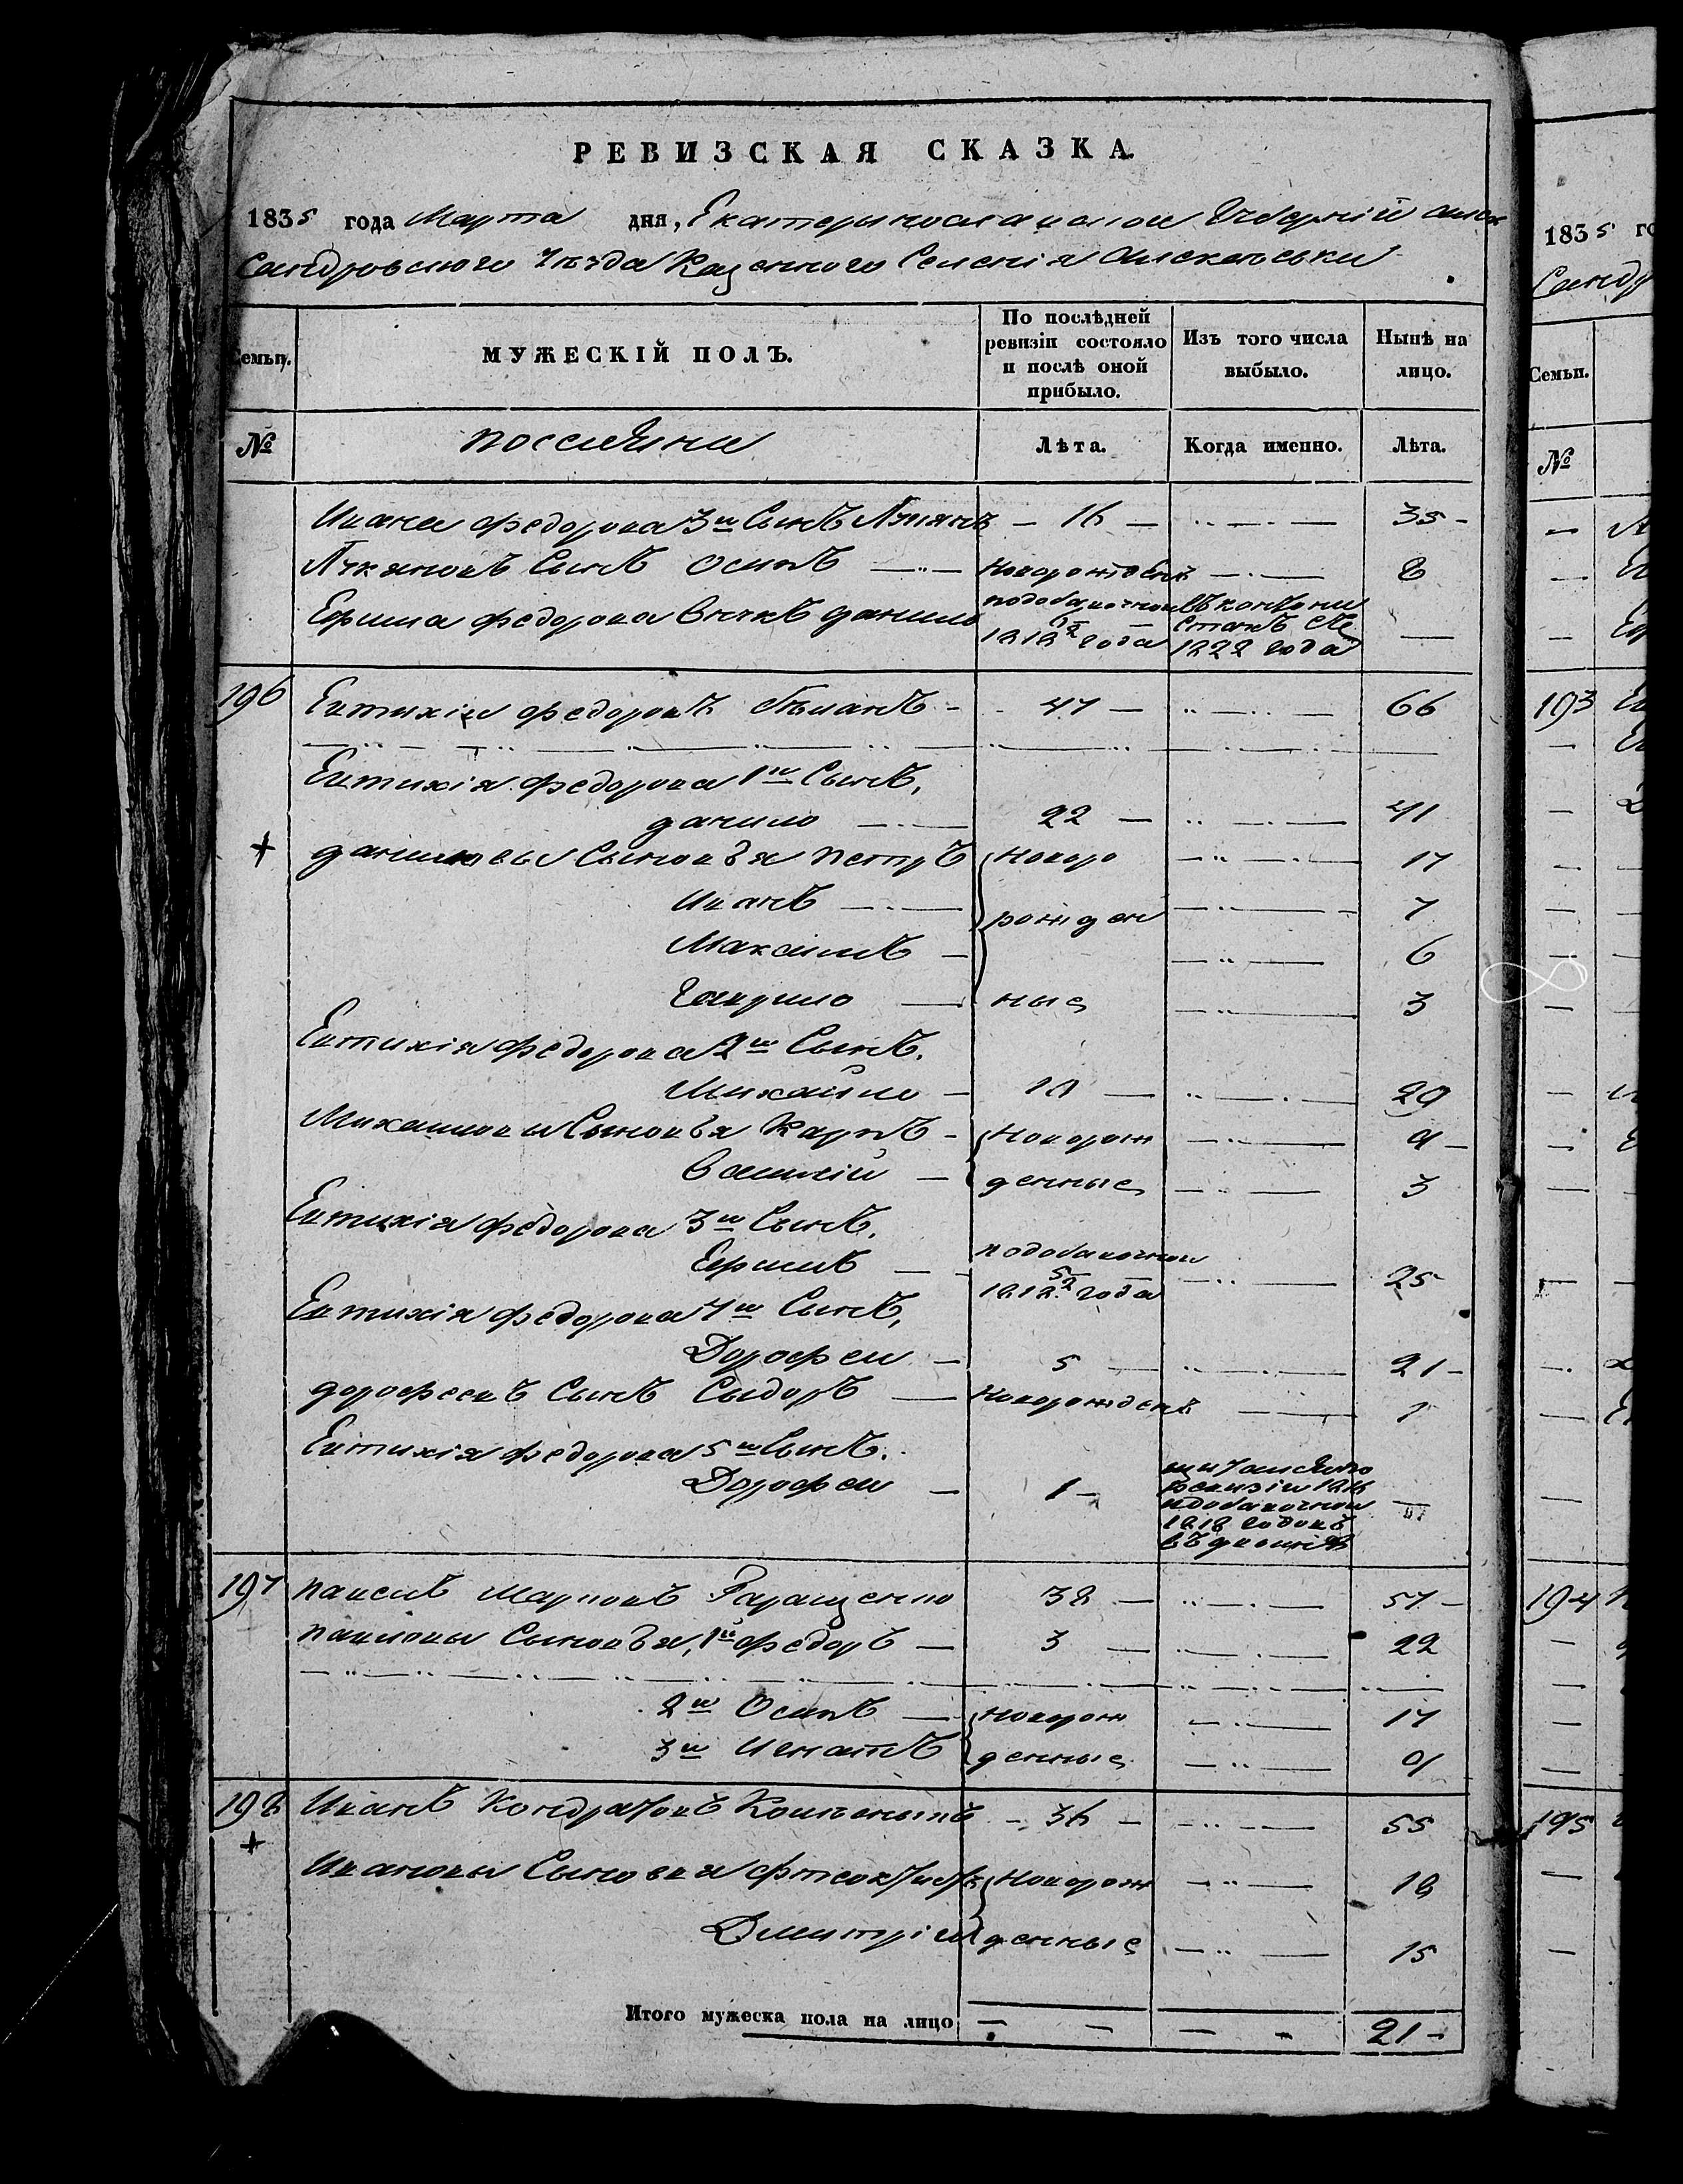 РЕВИЗСКАЯ СКАЗКА.
1835 года Марта дня, Екатеринославской Губерніи Алек
сандровского уезда Казенного Селенія
Семьи. МУЖЕСКІЙ ПОЛЪ. По послѣдней ревизіи состояло и послѣ оной прибыло. Изъ того числа выбыло. Нынѣ на лицо.
№ поселяне Лѣта. Когда именно. Лѣта.
Ивана Федорова 3й Сынъ Лукянъ 16 35
Лукяновъ Сынъ Осипъ новорожденъ 8
Ефима Федорова внукъ данило подобавочной 1818 года 1828 года
196 Евтихій Федоровъ Бѣланъ 47 66
Евтихія Федорова 1й Сынъ,
данило 22 41
даниловы Сыновъя петръ новоро 17
Иванъ рожден 7
Максимъ 6
Гаврило ные 3
Евтихія Федорова 2й Сынъ.
Михайло 10 29
Михайловы Сыновъя Карпъ новорож 9
Василій денные 3
Евтихія Федорова 3й Сынъ.
Ефимъ подобавочной 1818 года 25
Евтихія Федорова 4й Сынъ,
Дорофей 5 21
дорофеевъ Сынъ Сыдоръ новорожденъ 1
Евтихія Федорова 5й Сынъ.
Дорофей 1 ревизіи 1816 и добавочной 1818 годовъ въ двойнѣ
197 павелъ Марковъ Таращенко 38 57
павловы Сыновъя, 1й Федоръ 3 22
2й Осипъ новорож 17
3й Игнатъ денные 9
198 Иванъ Кондратовъ 36 55
Ивановы Сыновья новорож 18
Дмитрій денные 15
Итого мужеска пола на лицо 21
1835 го
Сандр
Семьи.
№
193
194
195